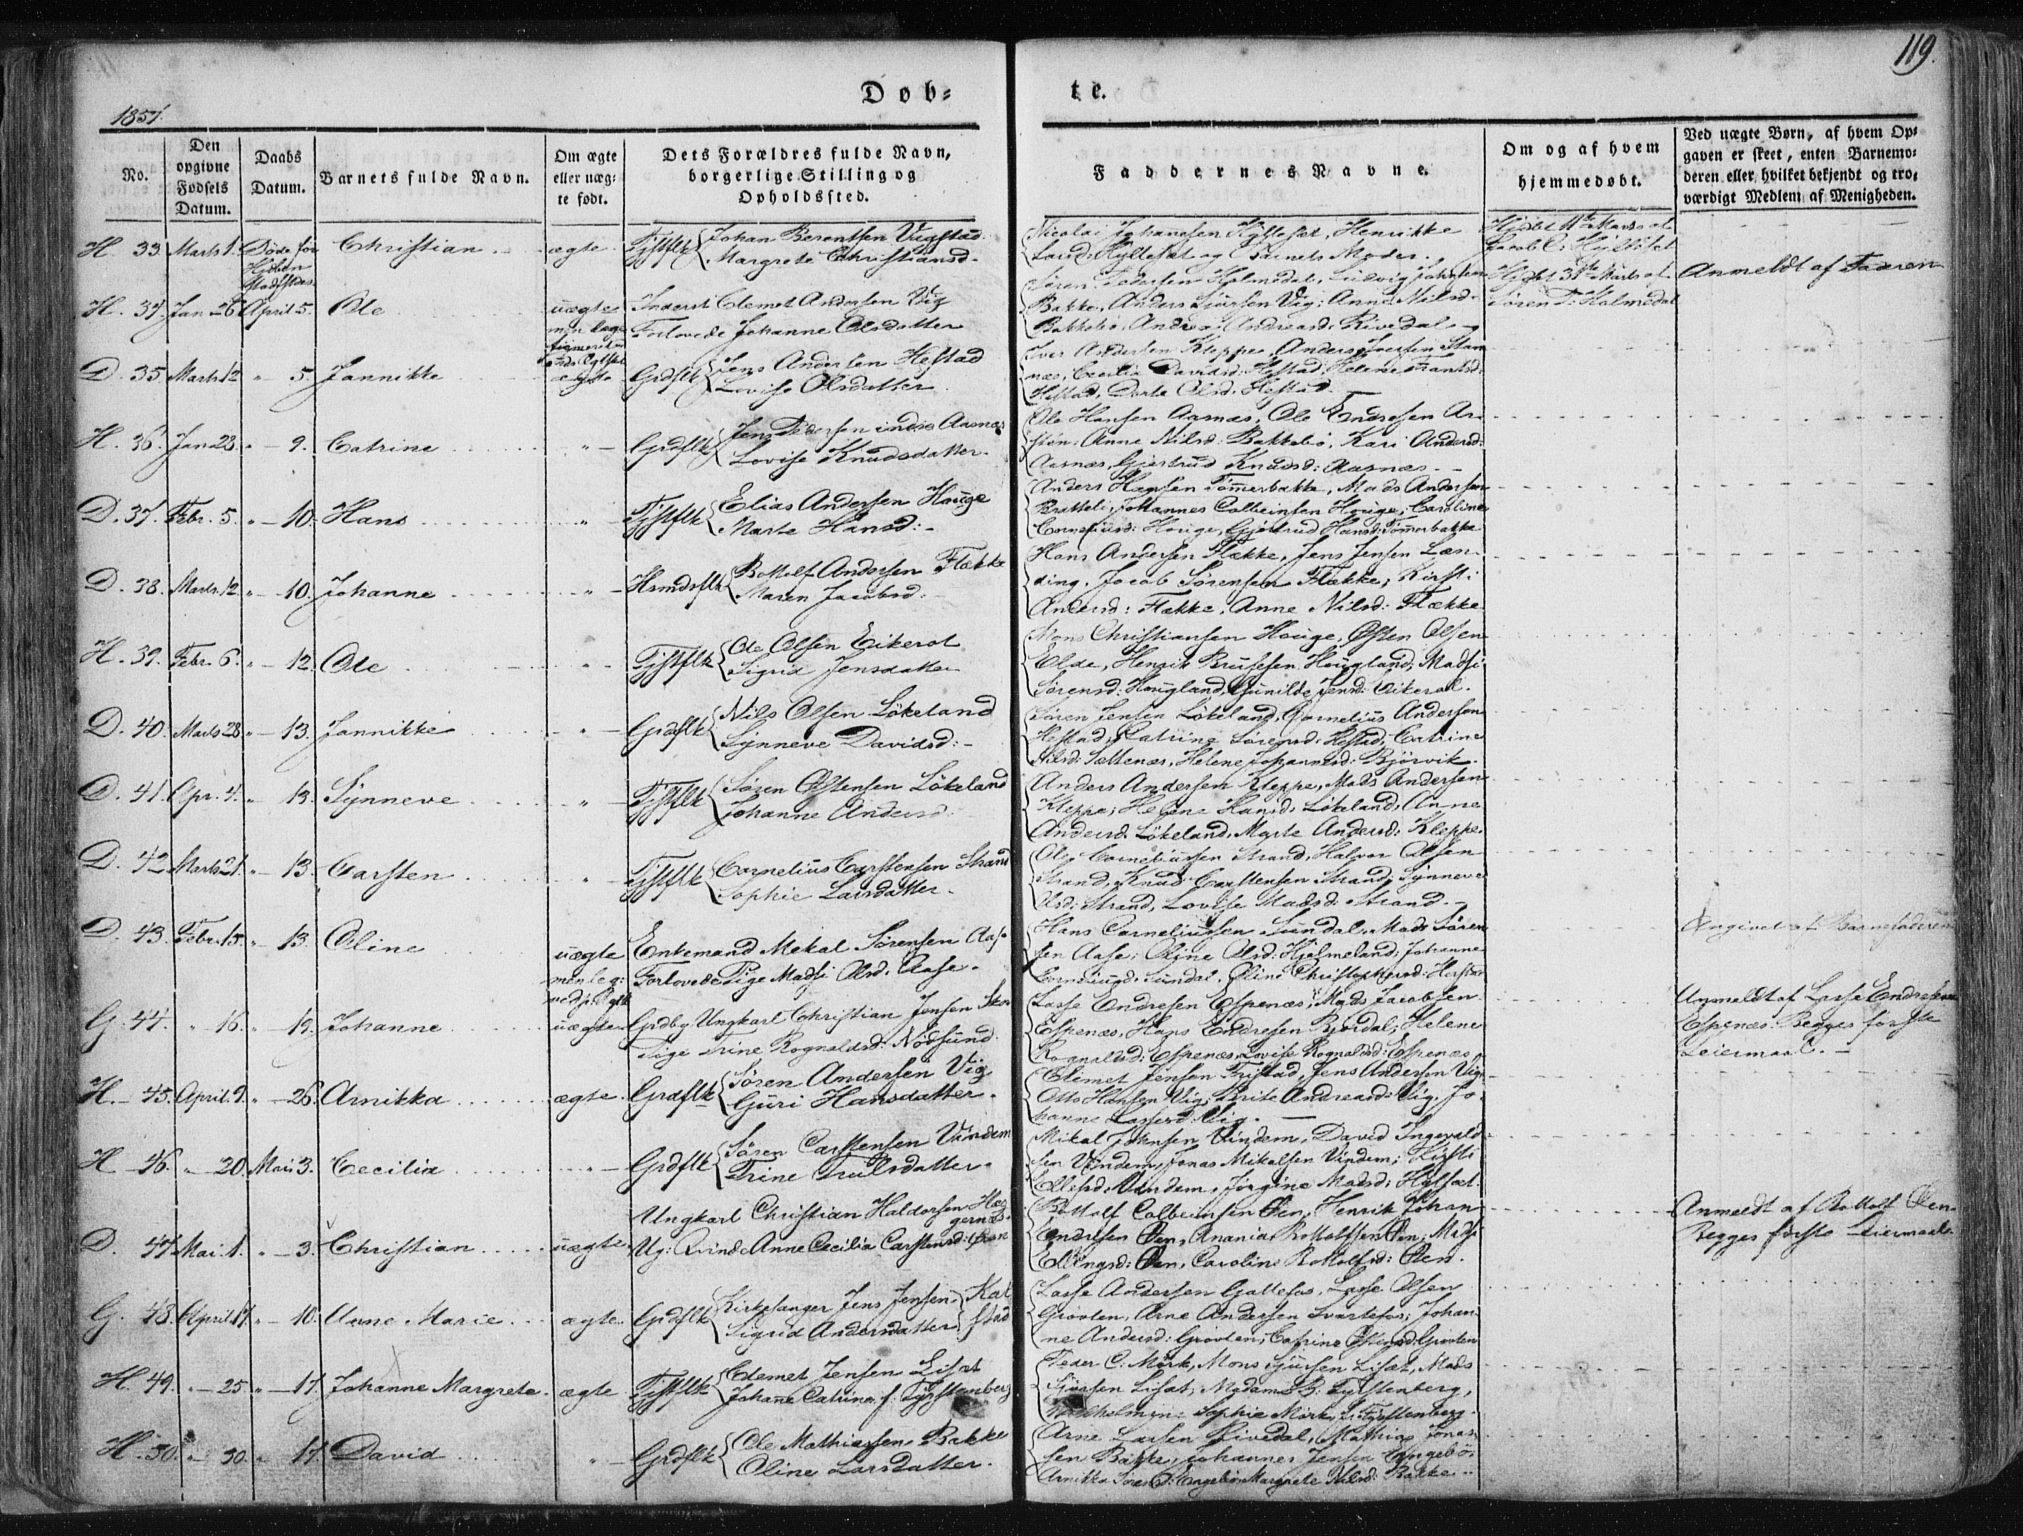 119.
1851.
Døb-
te.
No.
Den opgivne Fødsels Datum.
Daabs Datum.
Barnets fulde Navn.
Om ægte eller uæg-te født.
Dets Forældres fulde Navn, borgerlige Stilling og Opholdssted.
Faddernes Navne.
Om og af hvem hjemmedøbt.
Ved uægte Børn, af hvem Op-gaven er skeet, enten Barnemo-deren eller hvilket bekjendt og tro-værdigt Medlem af Menigheden.
H. 33. Marts 1. Døde før Christian ægte Johan Berentsen
Margrete Christiansd.
Nicolai Johanesen Hyllesæt, Henrikke
Hyllesæt og Barnets Moder.
H. 34. Jan 26 April 5. Ole uægte Inderst Clemet Andersen Vig
Forlovede Johanne Olsdatter
Bakke, Anders Sjursen Vig, Anne Nilsd.
Bakkebø, Andrea Andreasd. Rivedal
Anmeldt af Faderen
D. 35. Marts 12 " 5. Jannikke ægte Grdflk Jens Andersen Hestad
Lovise Olsdatter
Iver Andersen Kleppe, Anders Iversen Stam
næs, Cecilia Davidsd: Hestad, Helene Frantsd:
Hestad, Dorte Olsd. Hestad
H. 36. Jan 23. " 9. Catrine " Grdflk Jens Pedersen indre Aarnæs
Lovise Knudsdatter.
Ole Hansen Aarnæs, Ole Endresen
Anne Nilsd: Bakkebø, Kari Andersd:
Aarnæs, Gjertrud Knudsd: Aarnæs
D. 37. Febr. 5. " 10. Hans " Elias Andersen Houge
Marte Hansd:
Anders Hansen Tømmerbakke, Mads Andersen
Johannes Colbeinsen Houge, Caroline
Corneliusd: Houge, Gjertrud Hansd: Tømmerbakke
D. 38. Marts 12 " 10. Johanne " Hsmdsflk Bottolf Andersen Flekke
Maren Jacobsd:
Hans Andersen Flekke, Jens Jensen Læn
ding, Jacob Sørensen Flekke, Kirsti
Andersd: Flekke, Anne Nilsd: Flekke
H. 39. Febr. 6. " 12. Ole " Ole Olsen Eikerol
Sigrid Jensdatter
Mons Christiansen Houge, Østen Olsen
Elde, Henrik Hougland, Madsi
Sørensd: Hougland, Gunilde Jensd: Eikerol.
D. 40. Marts 28. " 13. Jannikke " Grdflk Nils Olsen Løkeland
Synneve Davidsd:
Søren Jensen Løkeland, Cornelius Andersen
Hestad, Catrine Sørensd: Hestad, Catrine
Nilsd: Sættenæs, Helene Johannesd: Bjørvik.
D. 41. Apr. 4. " 13. Synneve " Søren Østensen Løkeland
Johanne Andersd.
Anders Andersen Kleppe, Mads Andersen
Kleppe, Helene Hansd: Løkeland, Anne
Andersd. Løkeland, Marte Andersd: Kleppe.
D. 42. Marts 21. " 13. Carsten " Cornelius Carstensen Strand
Sophie Larsdatter.
Ole Corneliussen Strand, Halvor Olsen
Strand, Knud Carstensen Strand, Synneve
Olsd: Strand, Lovise Madsd: Strand.
D. 43. Febr. 15. " 13. Oline uægte Enkemand Mekal Sørensen Aase
Forlovede Pige Madsi Olsd. Aase.
Hans Corneliussen Sundal, Mads Søren
sen Aase, Oline Olsd: Hjelmeland, Johanne
Corneliusd: Sundal, Oline Christophersd: Hestad
Angivet af Barnefaderen
G. 44. " 16. " 19. Johanne uægte Grdbg Ungkarl Christian Jensen
Pige Trine Rognaldsd: Nødsund.
Lasse Endresen Espenæs, Mads Jacobsen
Espenæs, Hans Endresen Helene
Rognaldsd: Espenæs, Lovise Rognaldsd: Espenæs
Anmeldt af Lasse Endresen
Espenæs. Begges første
Leiermaal.
H. 45. April 9. " 26. Arnikka ægte Grdflk Søren Andersen Vig
Guri Hansdatter.
Clemet Jensen Tristad, Jens Andersen Vig,
Otto Hansen Vig, Brite Andreasd: Vig, Jo
hanne Lassesd: Vig.
H 46. " 20. Mai 3. Cecilia " Grdflk Søren Carstensen Vindem
Trine Trulsdatter.
Mikal Johnsen Vindem, David Ingevald
sen Vindem, Jonas Mikalsen Vindem, Kirsti
Vindem, Jørgine Madsd:
D. 47. Mai 1. " 3. Christian uægte Ungkarl Christian Haldorsen
Anne Cecilia Carstensd:
Bottolf Colbeinsen Øen, Henrik Johan
Endresen Øen, Anania Bottolfsen Øen, Madsi
Ellingsd: Øen, Caroline Bottolfsd: Øen.
Anmeldt af Bottolf Øen
Begges første Leiermaal.
G. 48. April 17. " 10. Anne Marie ægte Grdflk Kirkesanger Jens Jensen
Sigrid Andersdatter
Lasse Andersen Gallefos, Lasse Olsen
Grøvlen, Arne Andersen Svartefos, Johan-
ne Andersd: Grøvlen, Catrine Grøvlen
H. 49. " 25 " 17. Johanne Margrete ægte Clemet Jensen Lisæt
Johane Catrine f. Fyrstenberg
Peder C. Mørk, Mons Sjursen Lisæt, Mads
Sjursen Lisæt, Madam B. Fyrstenberg,
Sophie Mørk, Fyrstenberg.
H. 50. " 30. " 17. David " Grdflk Ole Mathiassen Bakke
Oline Larsdatter.
Arne Larsen Rivedal, Mathias Jonas-
sen Bakke, Johannes Jensen Engebø,
Margrete Nilsd: Bakke